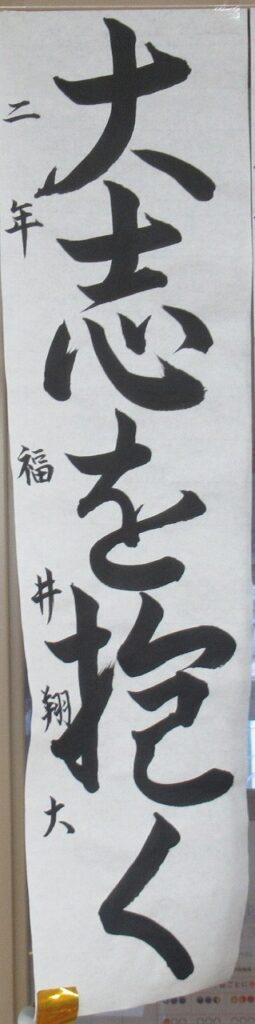 大志を抱く
二年 福井翔大